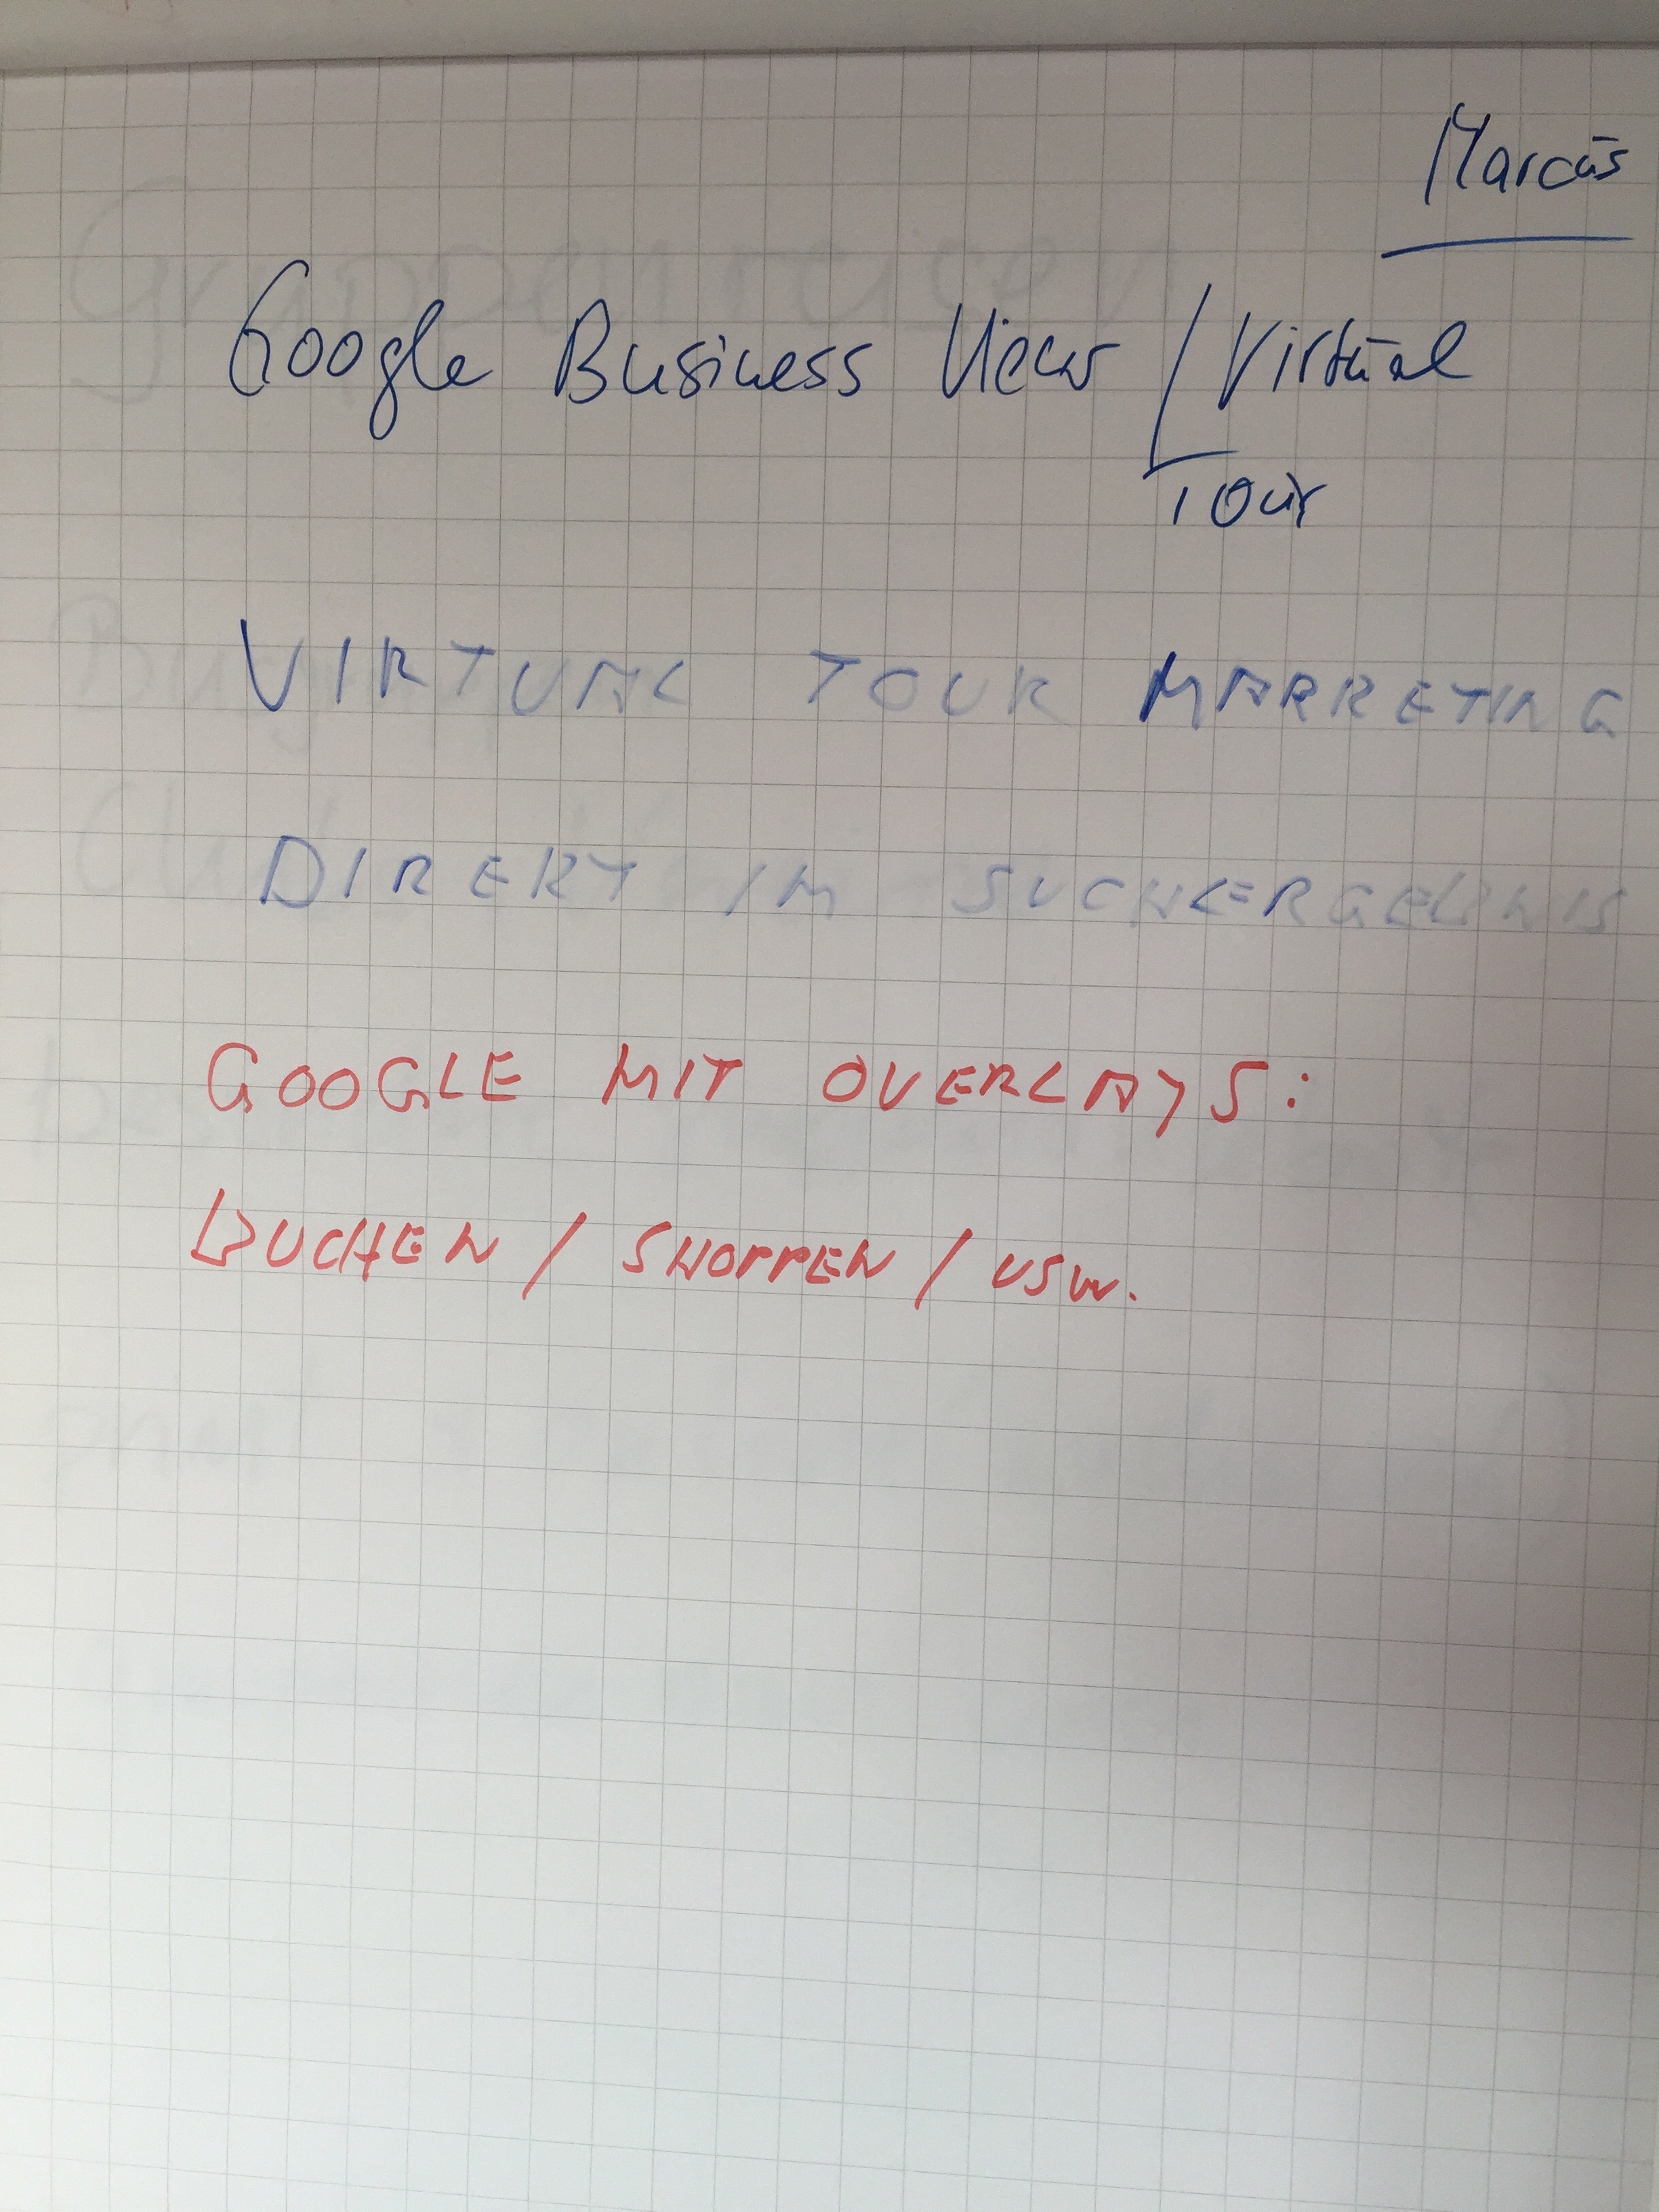 Marcus
Google Business View / Virtual
Tour
VIRTUAL TOUR MARKETING
DIREKT IM SUCHERGEBNIS
GOOGLE MIT OVERLAYS:
BUCHEN / SHOPPEN / USW.